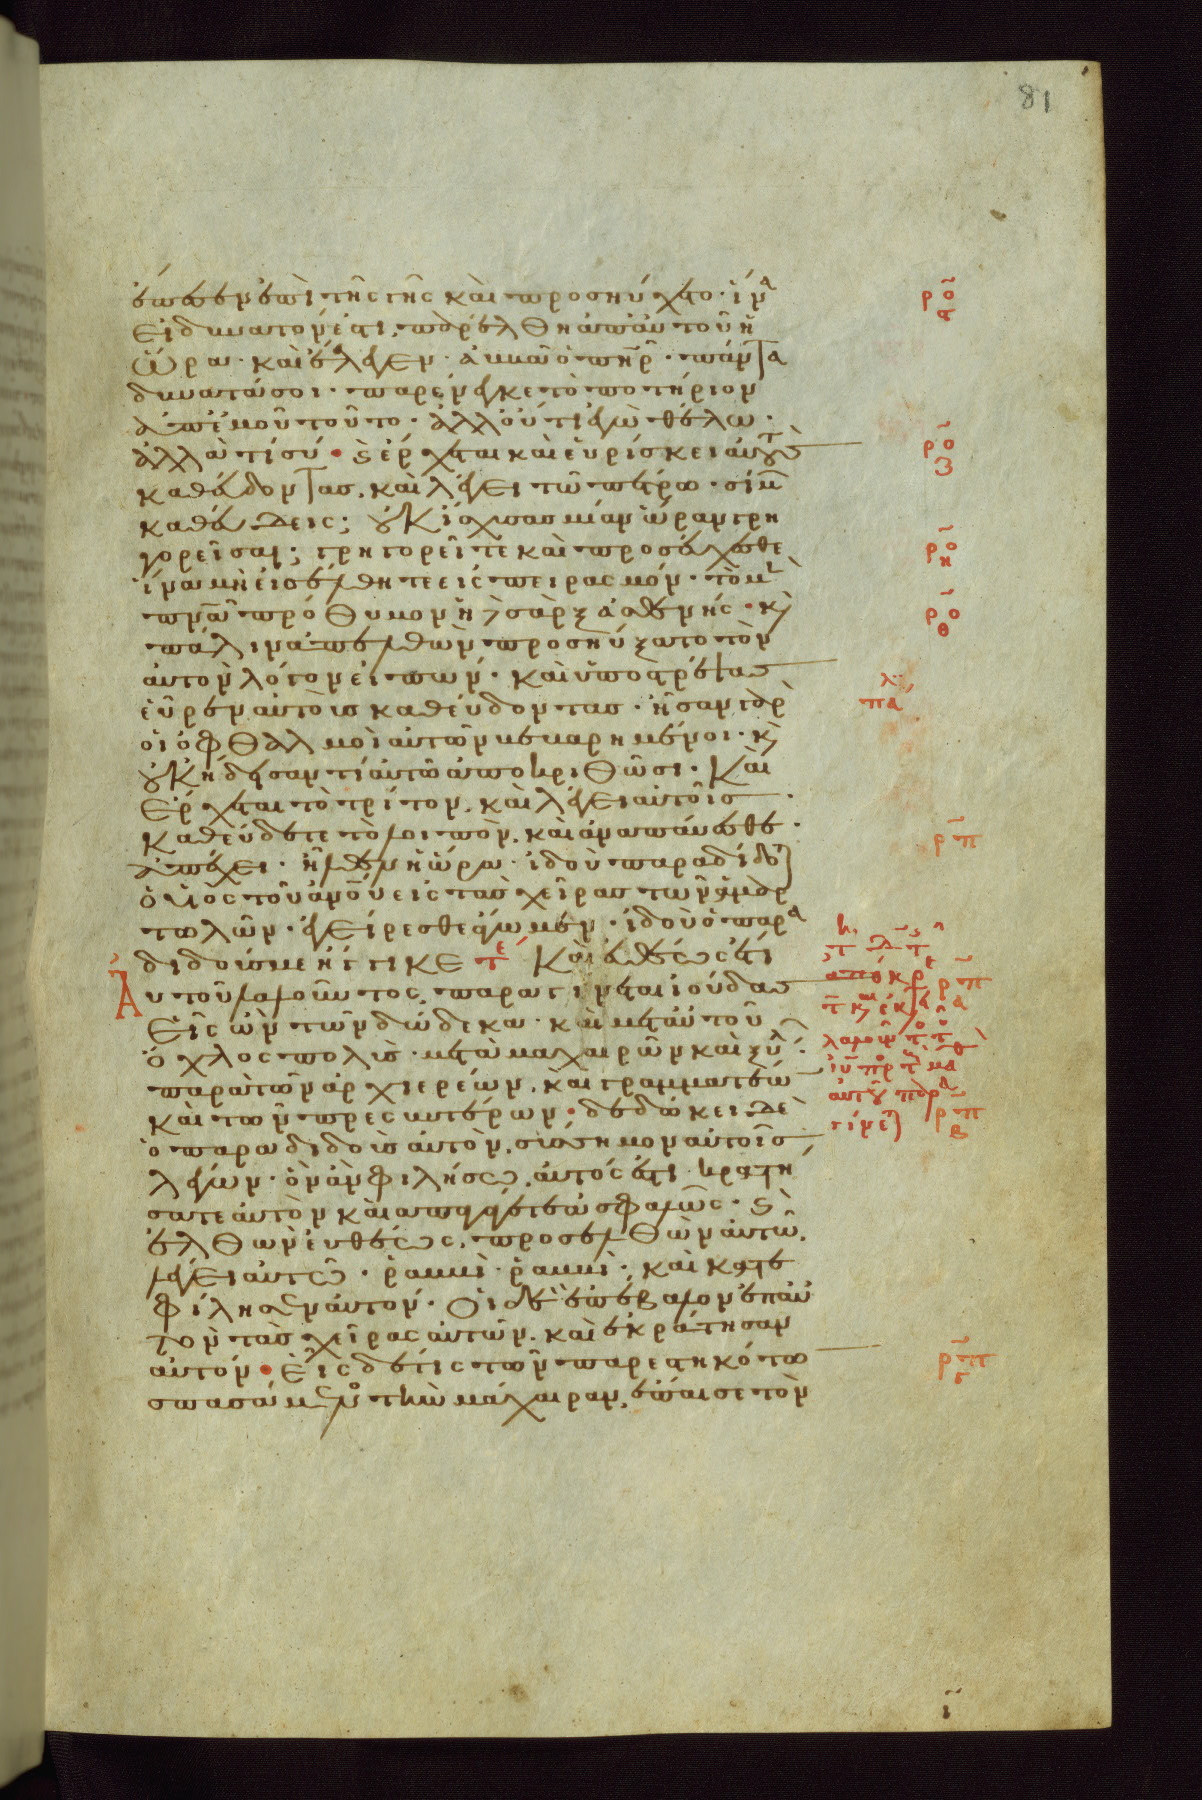 81
ἔπεσεν ἐπὶ τῆς γῆς καὶ προσηύχετο· ἵνα
εἰ δυνατόν ἐστι, παρέλθη ἀπ' αὐτοῦ ἡ
ὥρα· καὶ ἔλεγεν· ἀββᾶ ὁ πηρ· πάντα
δυνατά σοι· παρένεγκε τὸ ποτήριον
ἀπ' ἐμοῦ τοῦτο· ἀλλ' οὐ τί ἐγὼ θέλω·
ἀλλὰ τί σύ· καὶ ἔρχεται καὶ εὑρίσκει αὐτοὺς
καθεύδοντας, καὶ λέγει τῶ πέτρω· σίμων
καθεύδεις; οὐκ ἴσχυσας μίαν ὥραν γρη
γορεῖσαι; γρηγορεῖτε καὶ προσεύχεσθε
ἵνα μὴ εἰσέλθητε εἰς πειρασμόν· τὸ μὲν
πνα πρόθυμον ἡ δὲ σὰρξ ἀσθενής· καὶ
πάλιν ἀπελθὼν προσηύξατο τὸν
αὐτὸν λόγον εἰπών· καὶ ὑποστρέψας
εὗρεν αὐτοὺς καθεύδοντας· ἦσαν γὰρ
οἱ ὀφθαλμοὶ αὐτῶν βεβαρημένοι· καὶ
οὐκ ἤδεσαν τί αὐτῶ ἀποκριθῶσι· Καὶ
ἔρχεται τὸ τρίτον, καὶ λέγει αὐτοῖς·
καθεύδετε τὸ λοιπὸν, καὶ ἀναπαύεσθε·
ἀπέχει· ἦλθεν ἡ ὥρα· ἰδοὺ παραδίδοται
ὁ υἱὸς τοῦ ανου εἰς τὰς χεῖρας τῶν ἁμαρ
τωλῶν· ἐγείρεσθε ἄγωμεν· ἰδοὺ ὁ παρα
διδούς με ἤγγικε τε Καὶ εὐθέως ἔτι
Αὐτοῦ λαλοῦντος, παραγίνεται ἰούδας
εἷς ὢν τῶν δώδεκα· καὶ μετ' αὐτοῦ
ὄχλος πολὺς· μετὰ μαχαιρῶν καὶ ξύλων
παρὰ τῶν ἀρχιερέων, καὶ γραμματέων
καὶ τῶν πρεσβυτέρων· δεδώκει δὲ
ὁ παραδιδοὺς αὐτὸν, σύσσημον αὐτοῖς
λέγων· ὃν ἂν φιλήσω, αὐτός ἐστι· κρατή
σατε αὐτὸν καὶ ἀπαγάγετε ἀσφαλῶς· καὶ
ἐλθὼν εὐθέως, προσελθὼν αὐτῶ,
λέγει αὐτῶ· ῥαββὶ· ῥαββὶ· καὶ κατε
φίλησεν αὐτόν· Οἱ δὲ ἐπέβαλον ἐπ' αὐ
τὸν τὰς χεῖρας αὐτῶν, καὶ ἐκράτησαν
αὐτόν· Εἷς δέ τις τῶν παρεστηκότων
σπασάμενος τὴν μάχαιραν, ἔπαισε τὸν
ρο
ρο
ρο
η
ρο
θ
πα
ρπ
ρπ
α
ρπ
β
ρπ
γ